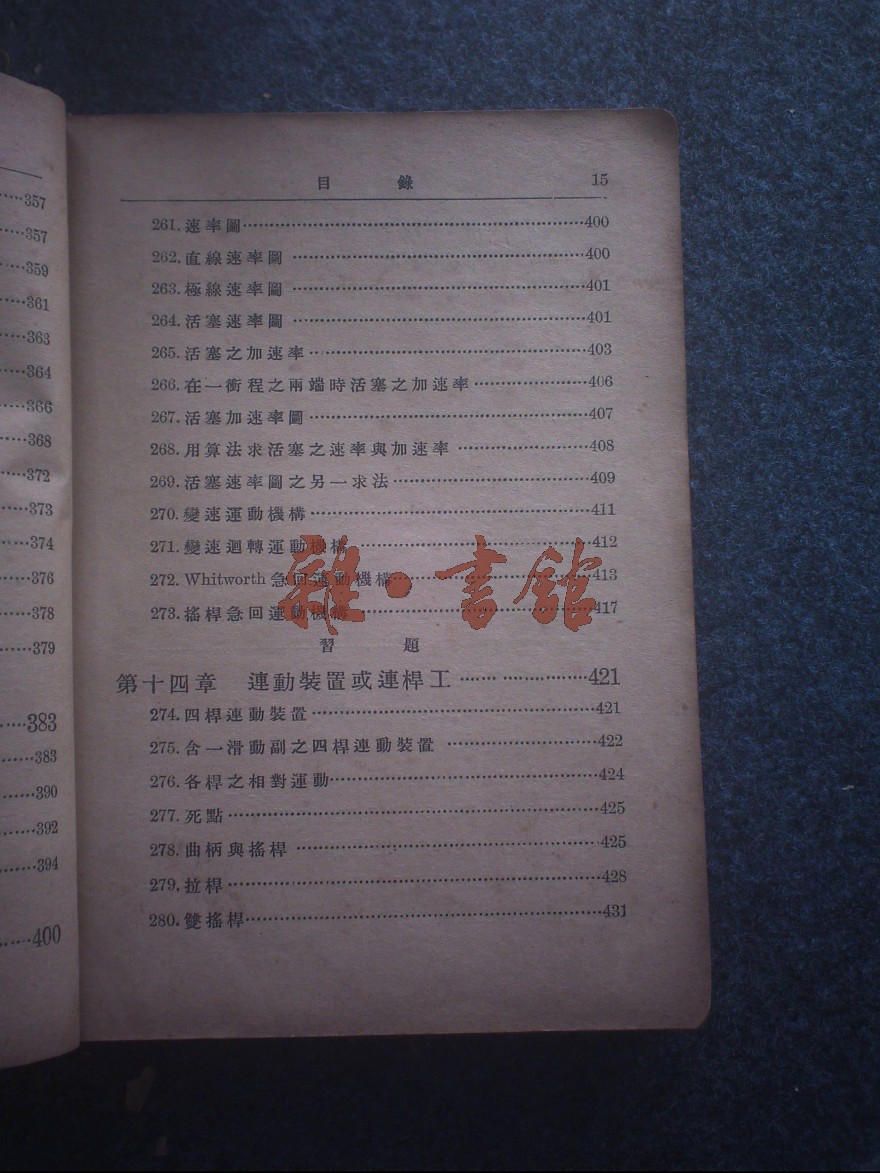 357
357
359
361
363
364
366
368
372
373
374
376
378
379
383
383
390
392
394
400
目 錄 15
261. 速率圖 400
262. 直線速率圖 400
263. 極線速率圖 401
264. 活塞速率圖 401
265. 活塞之加速率 403
266. 在一衝程之兩端時活塞之加速率 406
267. 活塞加速率圖 407
268. 用算法求活塞之速率與加速率 408
269. 活塞速率圖之另一求法 409
270. 變速運動機構 411
271. 變速迴轉運動機構 412
272. Whitworth 急回運動機構 413
273. 搖桿急回運動機構 417
習 題
第十四章 連動裝置或連桿工 421
274. 四桿連動裝置 421
275. 含一滑動副之四桿連動裝置 422
276. 各桿之相對運動 424
277. 死點 425
278. 曲柄與搖桿 425
279. 拉桿 428
280. 雙搖桿 431
雜·書館